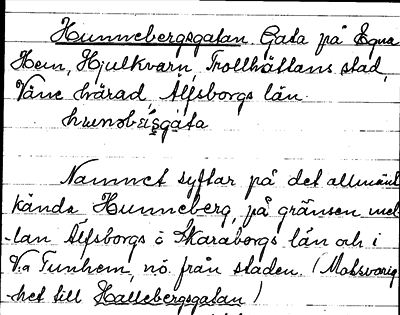 Hunnebergsgatan, Gata på Egna
Hem, Hjulkvarn, Trollhättans stad,
Väne härad Älfsborgs län.
Namnet syftar på det allmänt
kända Hunneberg, på gränsen mel-
-lan Älfsborgs o Skaraborgs län och i
V:a Tunhem, nö. från staden. (Motsvarig-
-het till Hallebergsgatan)